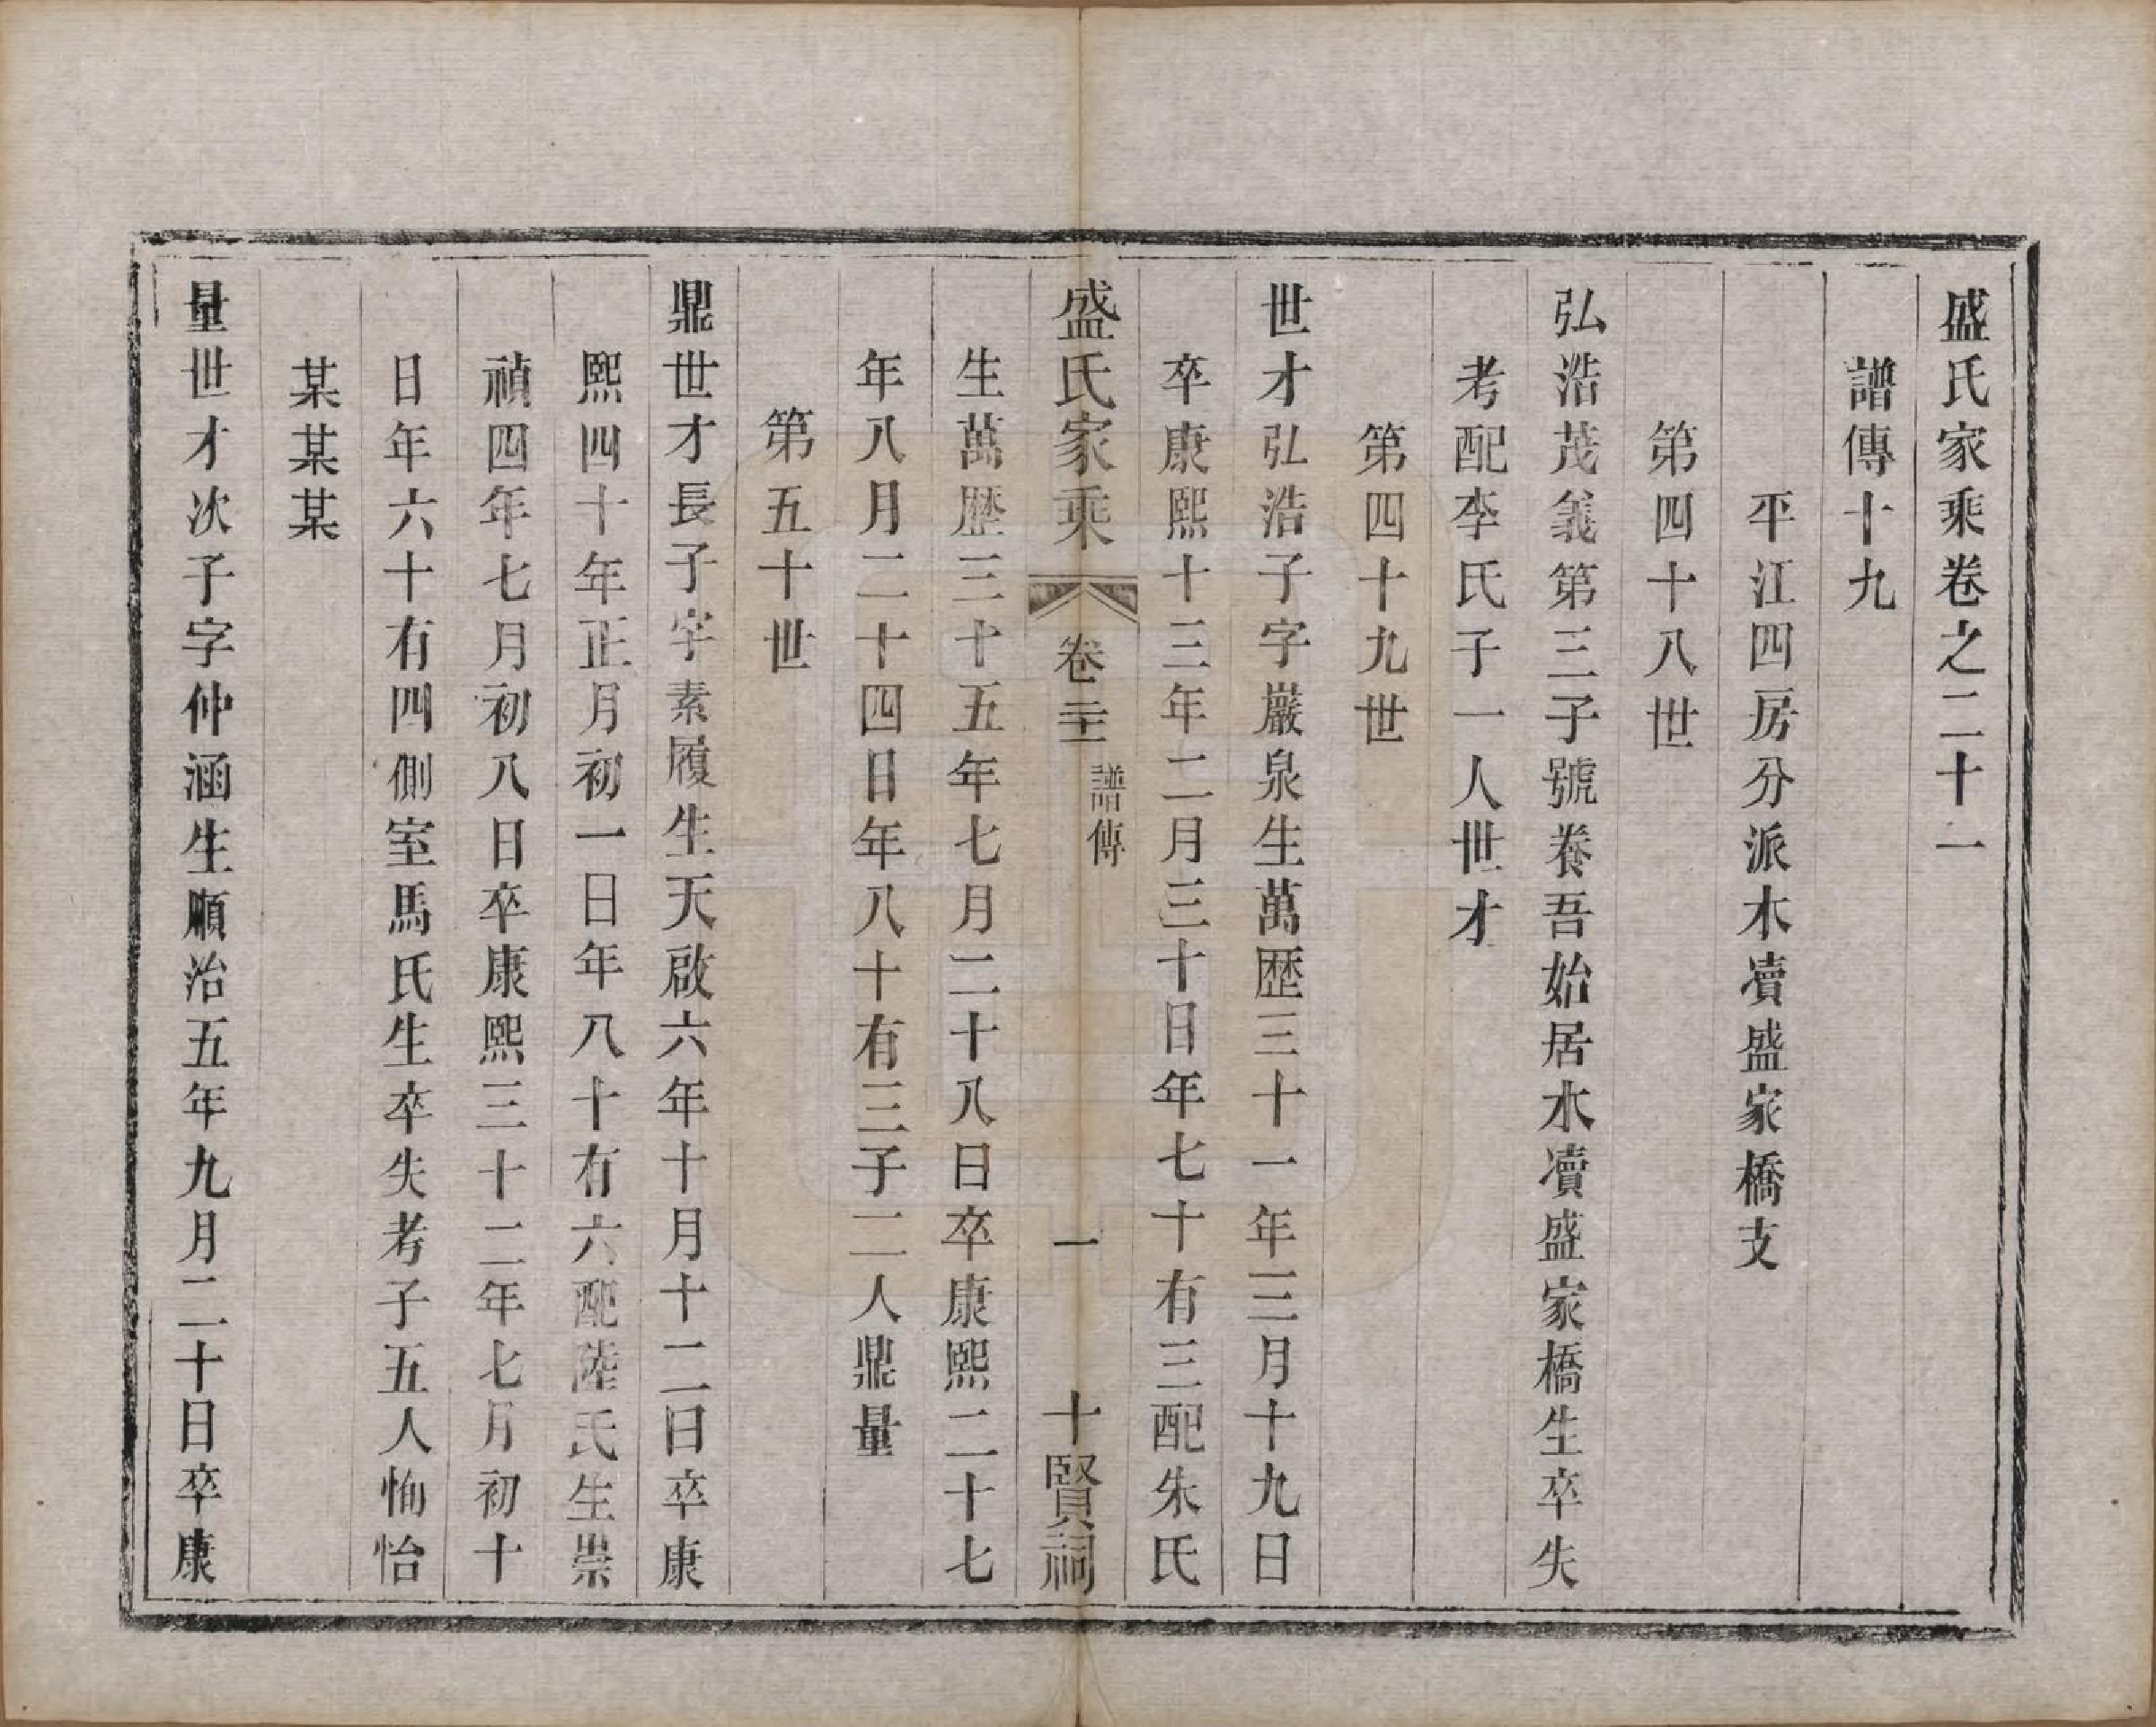 盛氏家乘卷之二十一
譜傳十九
平江四房分派木凟盛家橋支
第四十八世
弘浩茂義第三子號養吾始居木凟盛家橋生卒失
考配李氏子一人世才
第四十九世
世才弘浩子字巖泉生萬歷三十一年三月十九日
卒康熙十三年二月三十日年七十有三配朱氏
盛氏家乘 卷二十一 譜傳 一 十賢祠
生萬歷三十五年七月二十八日卒康熙二十七
年八月二十四日年八十有三子二人鼎量
第五十世
鼎世才長子字素履生天啟六年十月十二日卒康
熙四十年正月初一日年八十有六配陸氏生崇
禎四年七月初八日卒康熙三十二年七月初十
日年六十有四側室馬氏生卒失考子五人恂怡
某某某
量世才次子字仲涵生順治五年九月二十日卒康